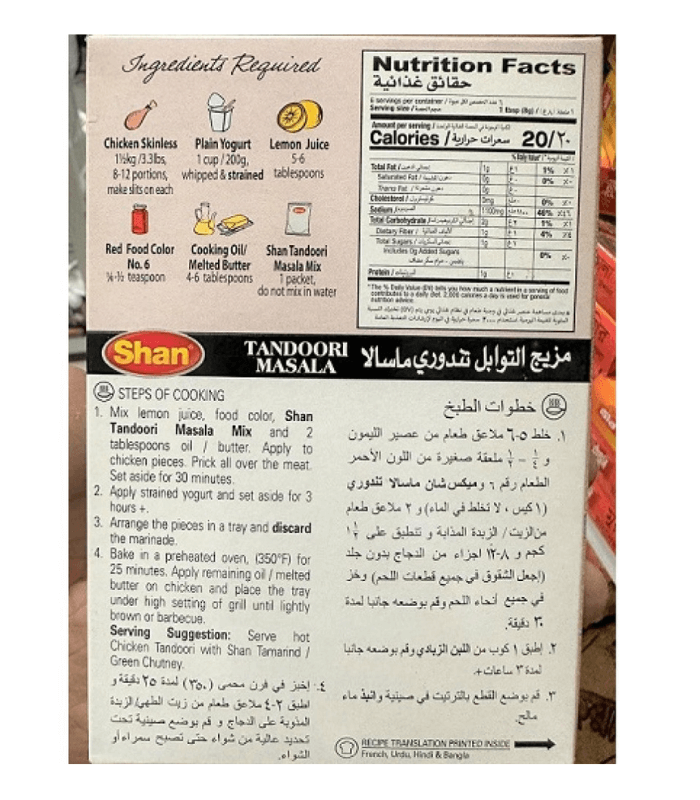 Ingredients Required
Chicken Skinless
1½kg /3.3lbs,
8-12 portions,
make slits on each
Plain Yogurt
1 cup / 200g,
whipped & strained
Lemon Juice
5-6
tablespoons
Red Food Color
No. 6
¼-½ teaspoon
Cooking Oil/
Melted Butter
4-6 tablespoons
Shan Tandoori
Masala Mix
1 packet,
do not mix in water
Nutrition Facts
حقائق غذائية
6 servings per container /
Serving size / 1 tbsp (8g) /
Amount per serving /
Calories / سعرات حرارية 20/٢٠
% Daily Value* /
Total Fat / 1g 1%
Saturated Fat / 0g 0%
Trans Fat / 0g
Cholesterol / 0mg 0%
Sodium / 1100mg 46%
Total Carbohydrate / 2g 1%
Dietary Fiber / 1g 4%
Total Sugars / 1g
Includes 0g Added Sugars 0%
Protein / 1g
*The % Daily Value (DV) tells you how much a nutrient in a serving of food
contributes to a daily diet. 2,000 calories a day is used for general
nutrition advice.
Shan
TANDOORI
MASALA
مزيج التوابل تندوري ماسالا
STEPS OF COOKING
1. Mix lemon juice, food color, Shan
Tandoori Masala Mix and 2
tablespoons oil / butter. Apply to
chicken pieces. Prick all over the meat.
Set aside for 30 minutes.
2. Apply strained yogurt and set aside for 3
hours +.
3. Arrange the pieces in a tray and discard
the marinade.
4. Bake in a preheated oven, (350°F) for
25 minutes. Apply remaining oil / melted
butter on chicken and place the tray
under high setting of grill until lightly
brown or barbecue.
Serving Suggestion: Serve hot
Chicken Tandoori with Shan Tamarind /
Green Chutney.
خطوات الطبخ
١. خلط ٥-٦ ملاعق طعام من عصير الليمون
و ¼ - ½ ملعقة صغيرة من اللون الأحمر
الطعام رقم ٦ وميكس شان ماسالا تندوري
(١ كيس ، لا تخلط في الماء) و ٢ ملاعق طعام
من الزيت / الزبدة المذابة و تنطبق على ١½
كجم و ٨-١٢ اجزاء من الدجاج بدون جلد
(إجعل الشقوق في جميع قطعات اللحم) وخز
في جميع أنحاء اللحم وقم بوضعه جانبا لمدة
٣٠ دقيقة.
٢. إطبق ١ كوب من اللبن الزبادي وقم بوضعه جانبا
لمدة ٣ ساعات+.
٣. قم بوضع القطع بالترتيت في صينية وانبذ ماء
مالح.
٤. إخبز في فرن محمى (٣٥٠) لمدة ٢٥ دقيقة و
اطبق ٢-٤ ملاعق طعام من زيت الطهي/الزبدة
المذوبة على الدجاج و قم بوضع صينية تحت
تحديد عالية من شواء حتى تصبح سمراء أو
الشواء.
RECIPE TRANSLATION PRINTED INSIDE
French, Urdu, Hindi & Bangla